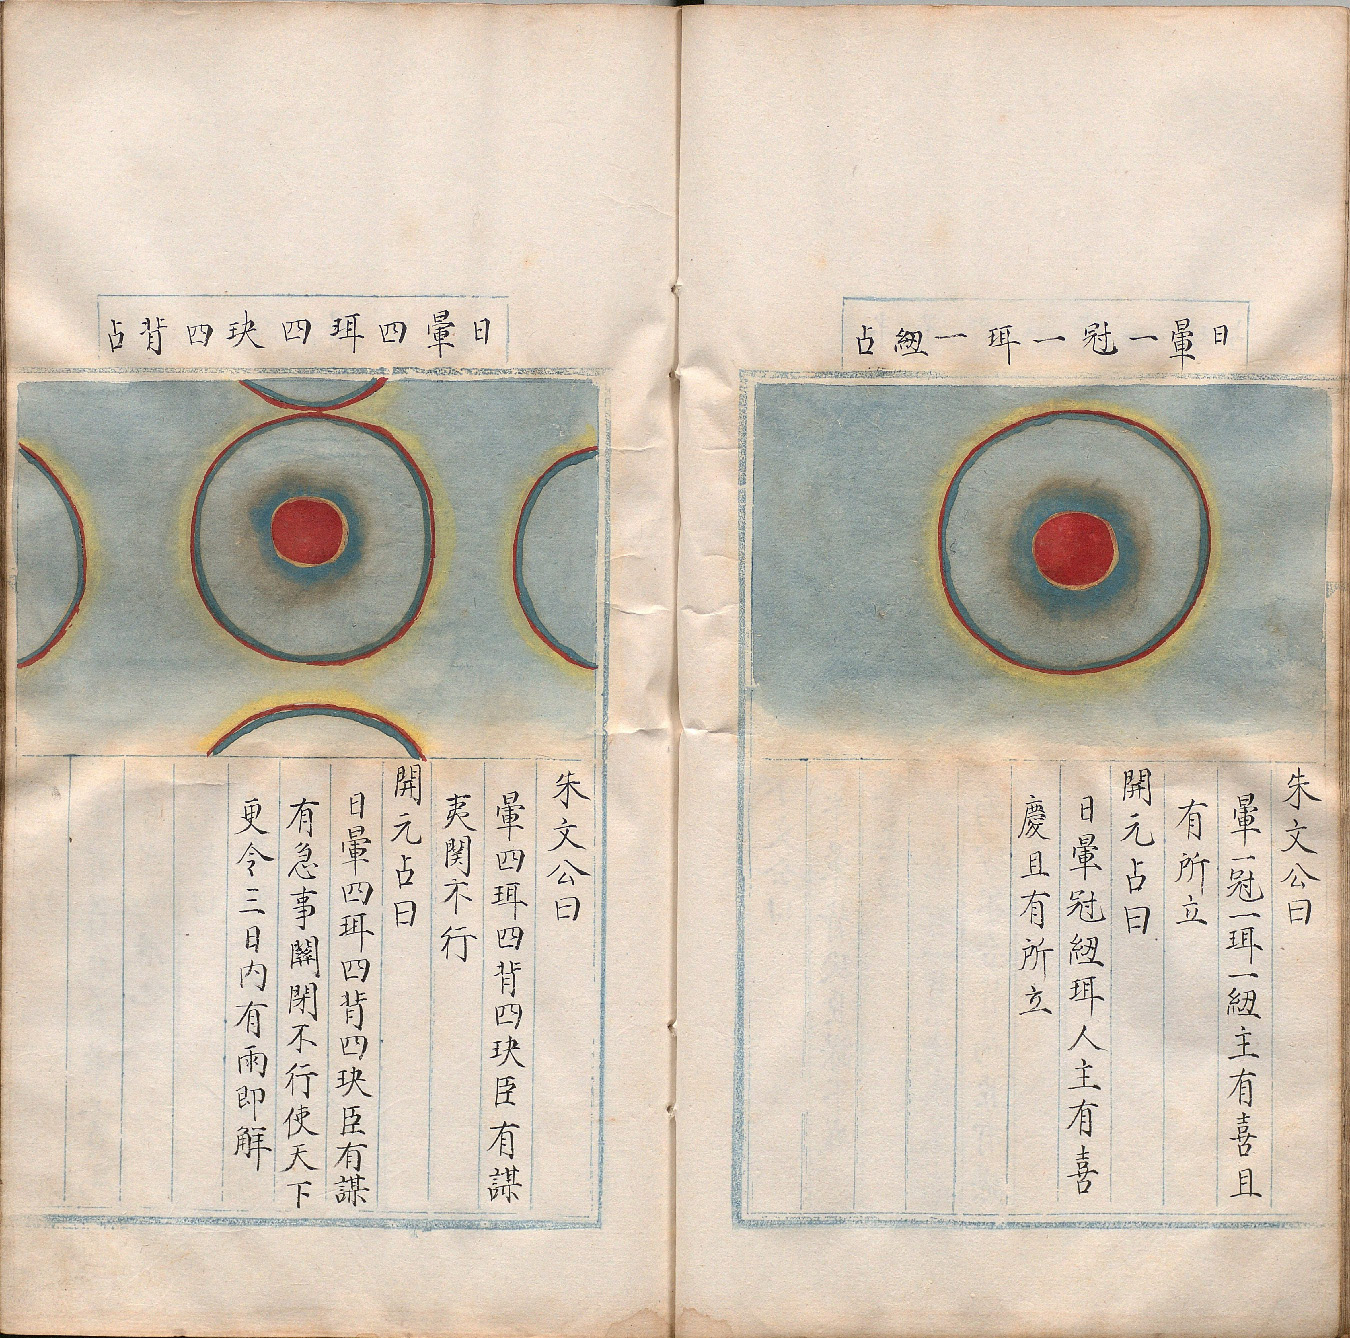 日暈一冠一珥一紐占
朱文公曰
暈一冠一珥一紐主有喜且
有所立
開元占曰
日暈冠紐珥人主有喜
慶且有所立
日暈四珥四玦四背占
朱文公曰
暈四珥四背四玦臣有謀
夷関不行
開元占曰
日暈四珥四背四玦臣有謀
有急事關閉不行使天下
更令三日内有雨即解